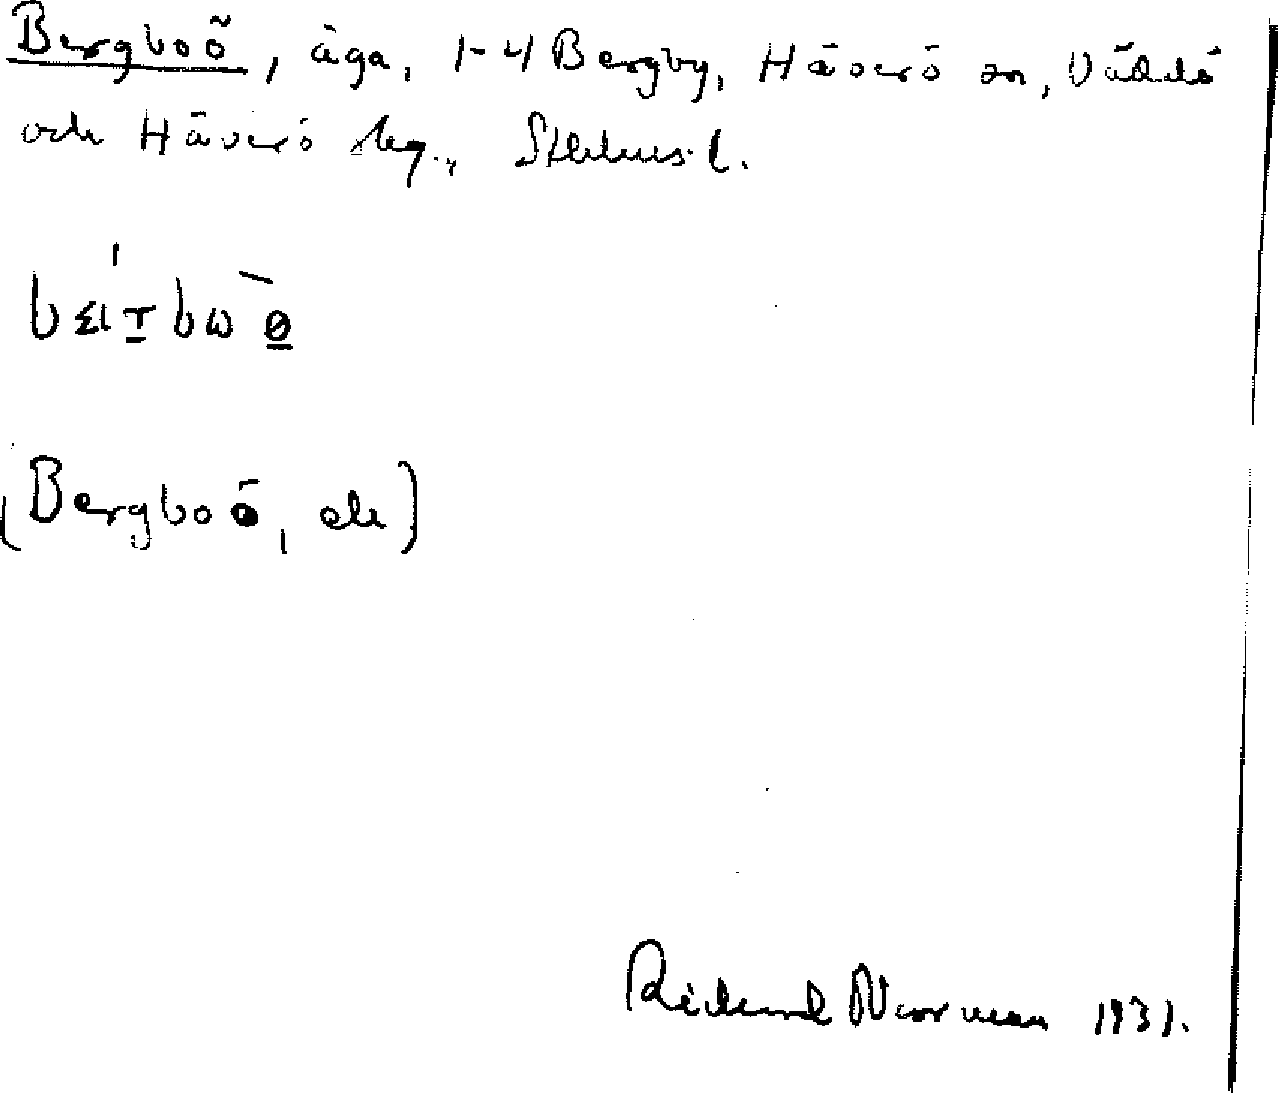 Bergboö, äga, 1-4 Bergby, Häverö sn, Väddö
och Häverö skg., Sthlms l.
(Bergboö, ek)
Rickard Norrman 1931.